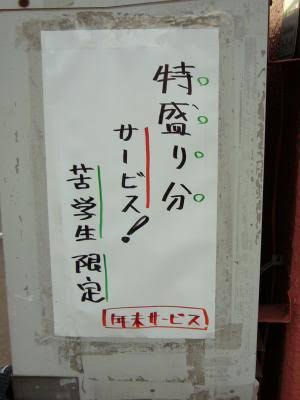 特盛り分
サービス!
苦学生限定
年末サービス